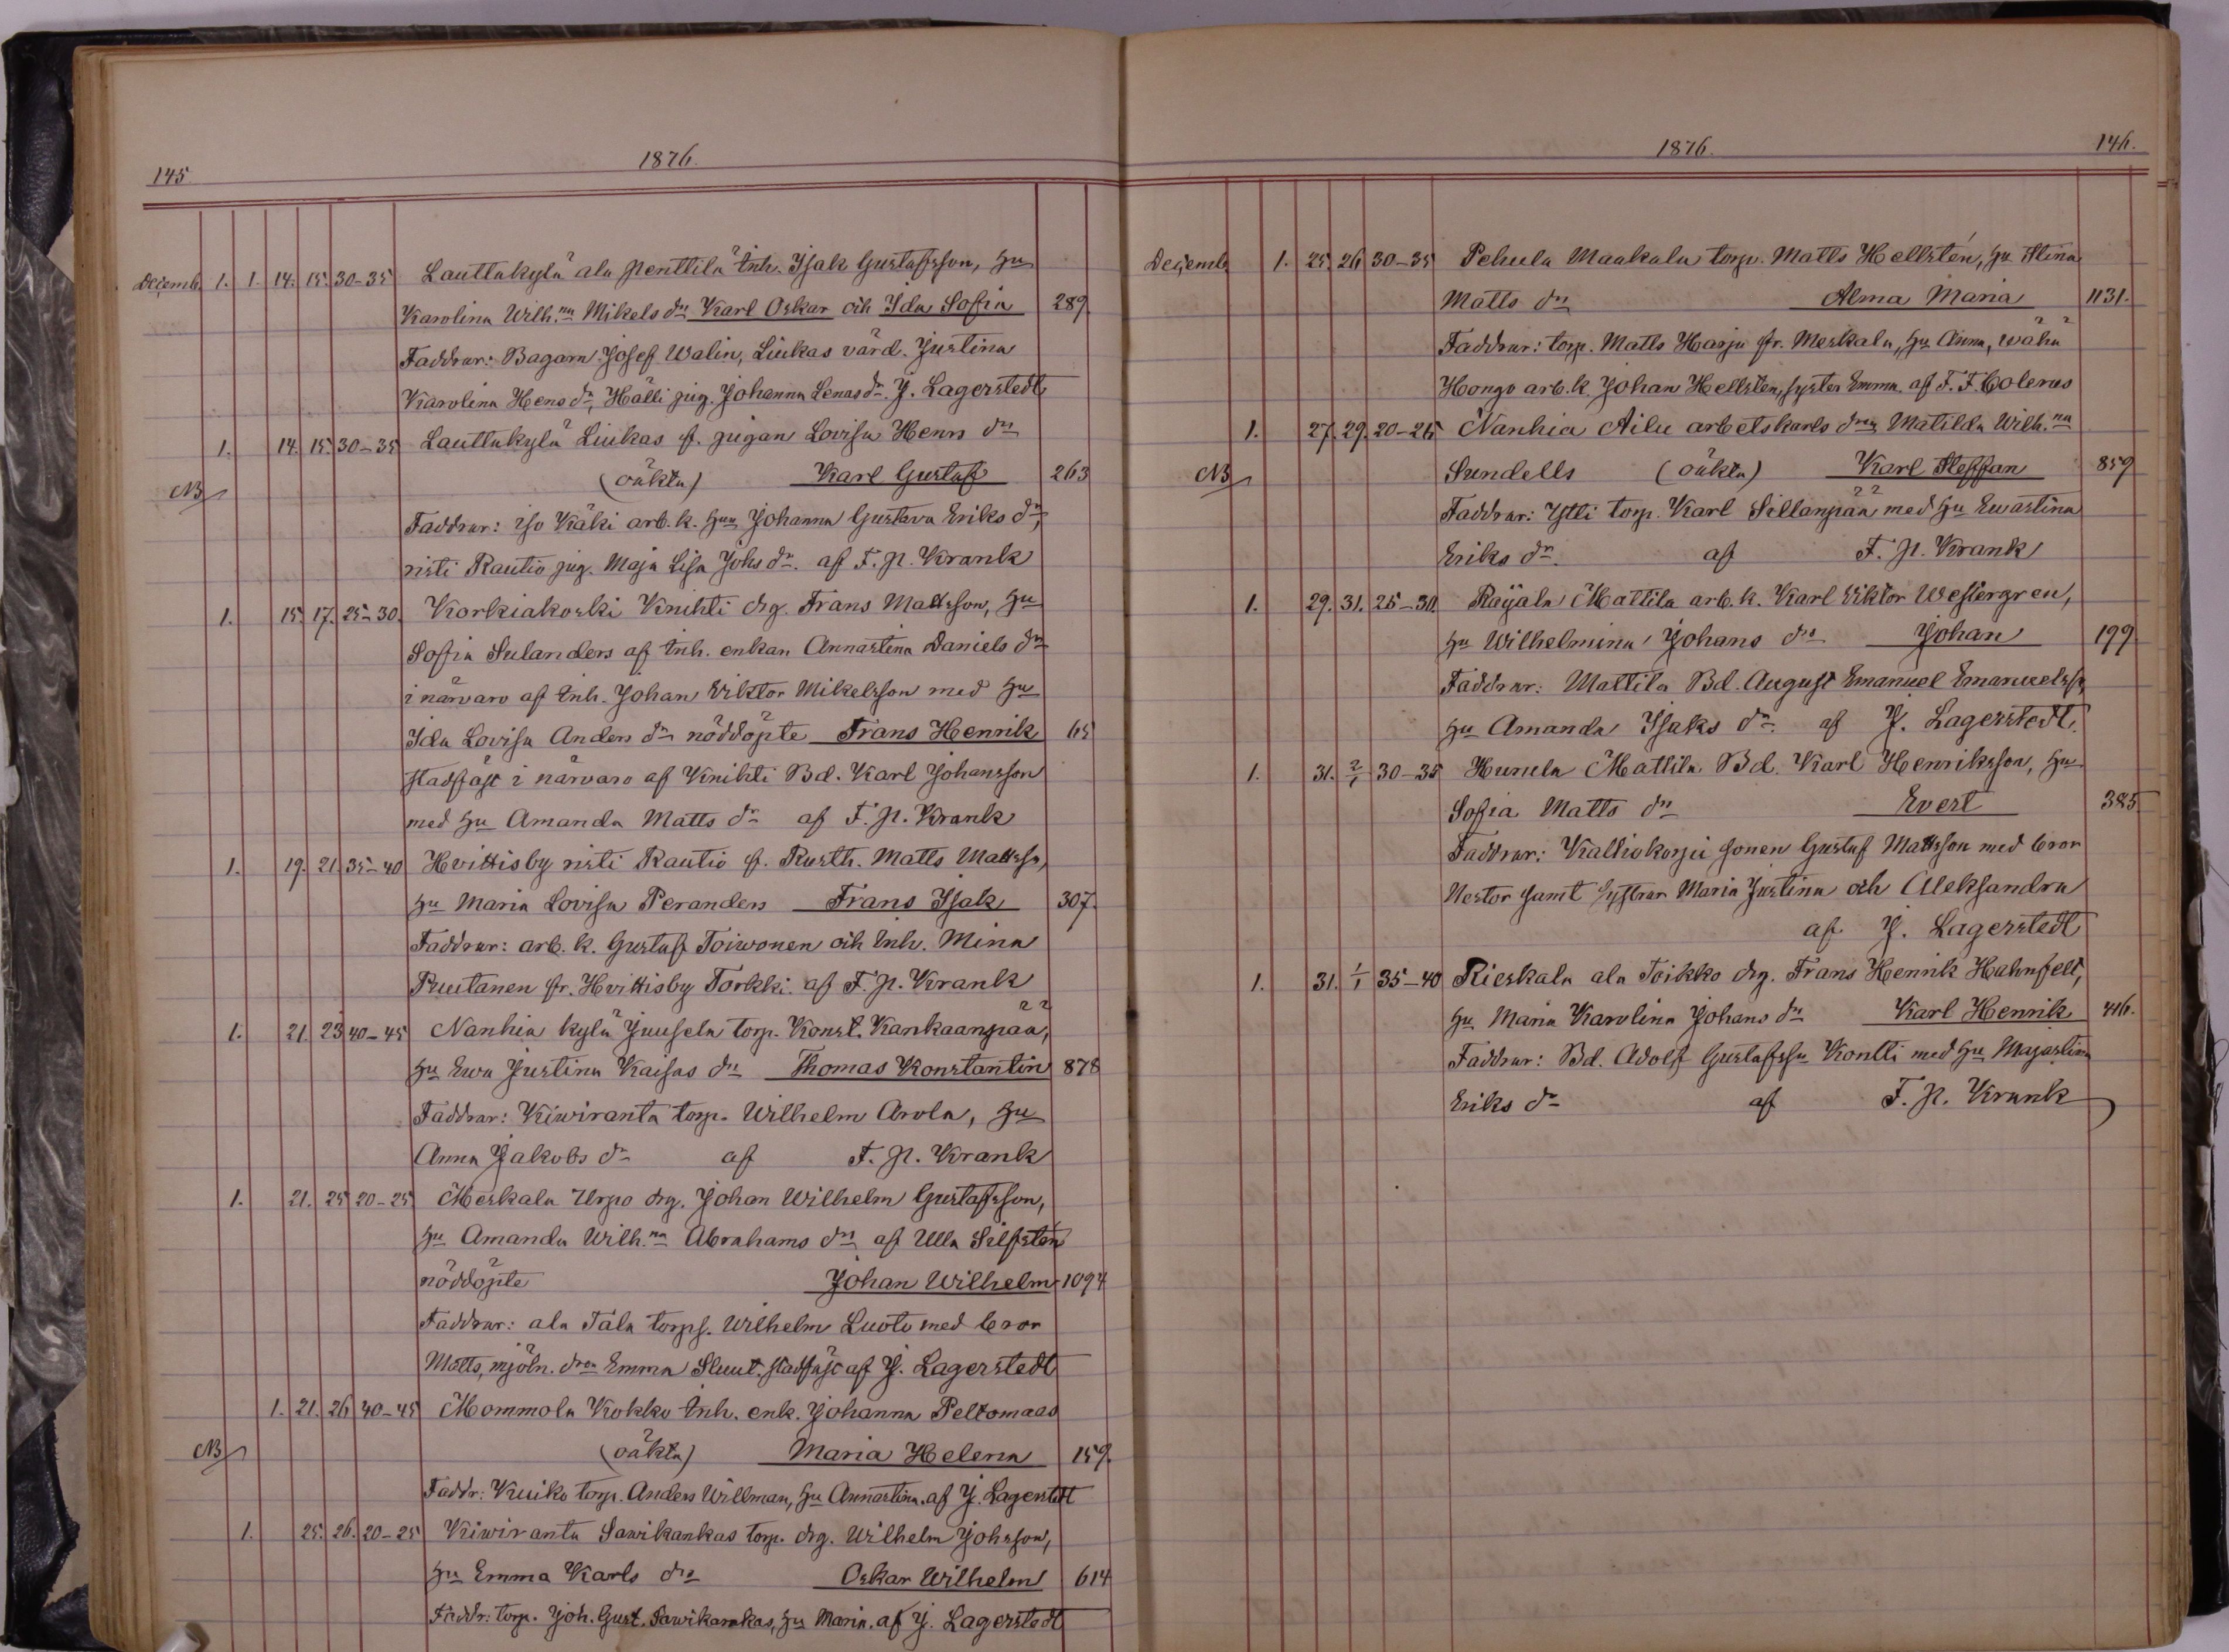 145
1876.
Decemb. 1. 1. 14. 15. 30-35 Lauttakylä ala Penttilä Inh. Isak Gustafsson, hu
Karolina Wilh.na Mikels dr Karl Oskar och Ida Sofia 289
Faddrar: Bagarn Josef Walin, Liukas värd. Justina
Karolina Hens dr, Hälli pig. Johanna Lenas dr. J. Lagerstedt
1. 14. 15. 30-35 Lauttakylä Liukas f. pigan Lovisa Henrs drs
NB (oäkta) Karl Gustaf 263
Faddrar: iso Käki arb. k. hun Johanna Gustava Eriks dr,
risti Rautio pig. Maja Lisa Johs dr. af F. P. Krank
1. 15. 17. 25-30. Korkiakoski Knihti drg. Frans Mattsson, hu
Sofia Sulanders af Inh. enkan Annastina Daniels dr
i närvaro af Inh. Johan Viktor Mikelsson med hu
Ida Lovisa Anders dr nöddöpte Frans Henrik 65
stadfäst i närvaro af Knihti Bd. Karl Johansson
med hu Amanda Matts dr af F. P. Krank
1. 19. 21. 35-40 Hvittisby risti Rautio f. Rusth. Matts Mattss,
hu Maria Lovisa Peranders Frans Isak 307.
Faddrar: arb. k. Gustaf Toiwonen och Inh. Mina
Ruutanen fr. Hvittisby Torkki. af F. P. Krank
1. 21. 23 40-45 Nanhia kylä Juusela torp. Konst. Kankaanpää,
hu Ewa Justina Kaisas dr Thomas Konstantin 878
Faddrar: Kiwiranta torp. Wilhelm Arola, hu
Anna Jakobs dr af F. P. Krank
1. 21. 25 20-25 Meskala Urpo drg. Johan Wilhelm Gustafsson,
hu Amanda Wilh.na Abrahams drs af Ulla Silfstén
nöddöpte Johan Wilhelm 1094
Faddrar: ala Tala torps. Wilhelm Luoto med bror
Matts, mjöln. dren Emma Sluut. stadfäst af J. Lagerstedt
1. 21. 26 40-45 Mommola Kokko Inh. enk. Johanna Peltomaas
NB (oäkta) Maria Helena 159.
Faddr: Kuiko torp. Anders Willman, hu Annastina. af J. Lagerstedt
1. 25. 26. 20-25 Kiwiranta Sawikankas torp. drg. Wilhelm Johsson,
hu Emma Karls drs Oskar Wilhelm 614
Faddr: torp. Joh. Gust. Sawikankas, hu Maria. af J. Lagerstedt
1876.
146.
Decemb. 1. 25. 26 30-35 Pehula Maakala torp. Matts Hellstén, hu Stina
Matts dr Alma Maria 1131.
Faddrar: torp. Matts Harju fr. Meskala, hu Anna, wähä
Hongo arb. k. Johan Hellsten, syster Emma. af F. F. Colerus
1. 27. 29. 20-25 Nanhia Ailu arbetskarls dren Matilda Wilh.na
NB Sundells (oäkta) Karl Steffan 859
Faddrar: Ytti torp. Karl Sillanpää med hu Ewastina
Eriks dr. af F. P. Krank
1. 29. 31. 25-30. Raijala Mattila arb. k. Karl Viktor Westergren,
hu Wilhelmina Johans drs Johan 199
Faddrar: Mattila Bd. August Emanuel Emanuelss,
hu Amanda Isaks dr. af J. Lagerstedt.
1. 31. 2/1 30-35 Hurula Mattila Bd. Karl Henriksson, hu
Sofia Matts drs Evert 385
Faddrar: Kalliokorpi sonen Gustaf Mattsson med bror
Nestor samt systrar Maria Justina och Aleksandra
af J. Lagerstedt
1. 31. 1/1 35-40 Rieskala ala Toikko drg. Frans Henrik Hahnfelt,
hu Maria Karolina Johans dr Karl Henrik 416.
Faddrar: Bd. Adolf Gustafssn Kontti med hu Majastina
Eriks dr af F. P. Krank